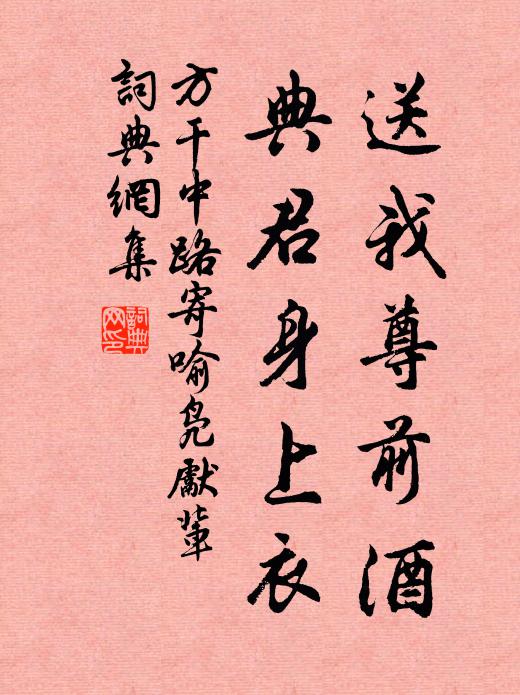 送我尊前酒
典君身上衣
方干中路寄喻鳧獻輩
詞典網集
詞典網印